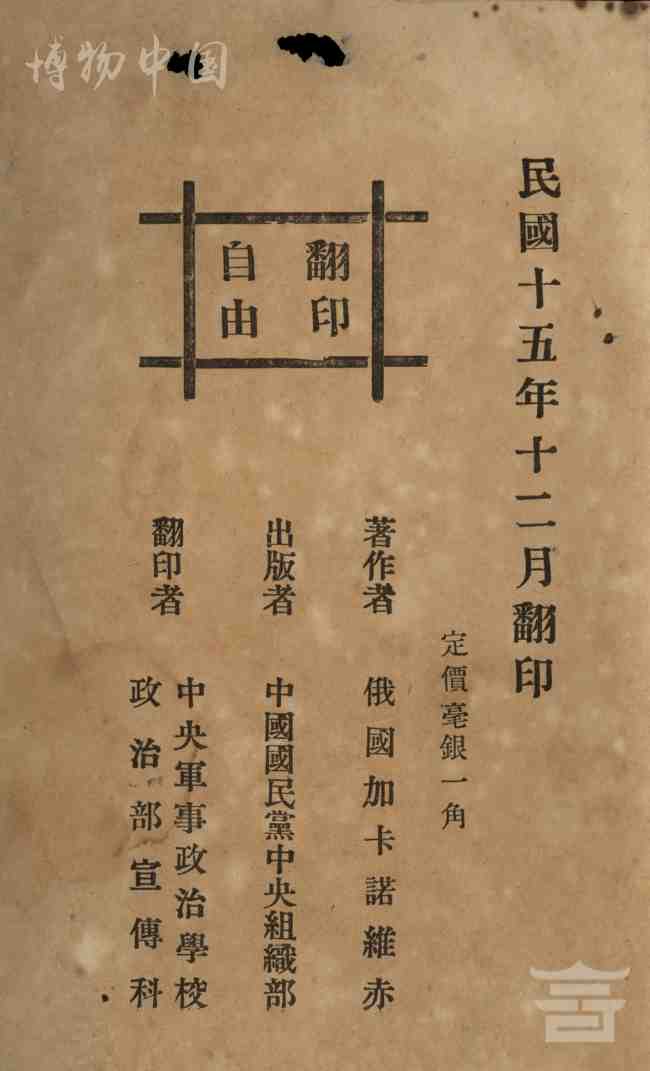 博物中国
民國十五年十二月翻印
定價毫銀一角
翻印
自由
著作者 俄國加卡諾維赤
出版者 中國國民黨中央組織部
翻印者 中央軍事政治學校
政治部宣傳科